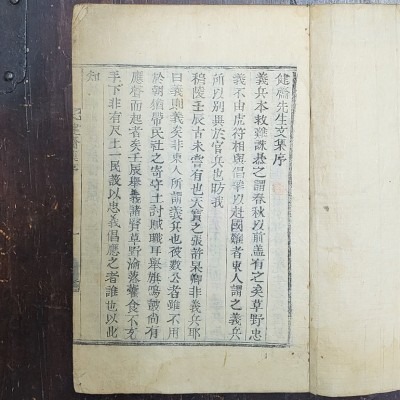 健齋先生文集序
義兵本救難誅暴之謂春秋以前盖有之矣草野忠
義不由虎符相與倡率以赴國難者東人謂之義兵
所以別異於官兵也昉我
穆陵壬辰古未嘗有也天寶之張許杲卿非義兵耶
曰義則義矣非東人所謂義兵也彼數公者雖不用
於朝猶帶民社之寄守土討賊職耳舉旅鳴鼓尚有
應聲而起者矣壬辰舉義諸賢草野淪落藿食不充
手下非有尺土一民誠以忠義倡應之者誰也以此
知